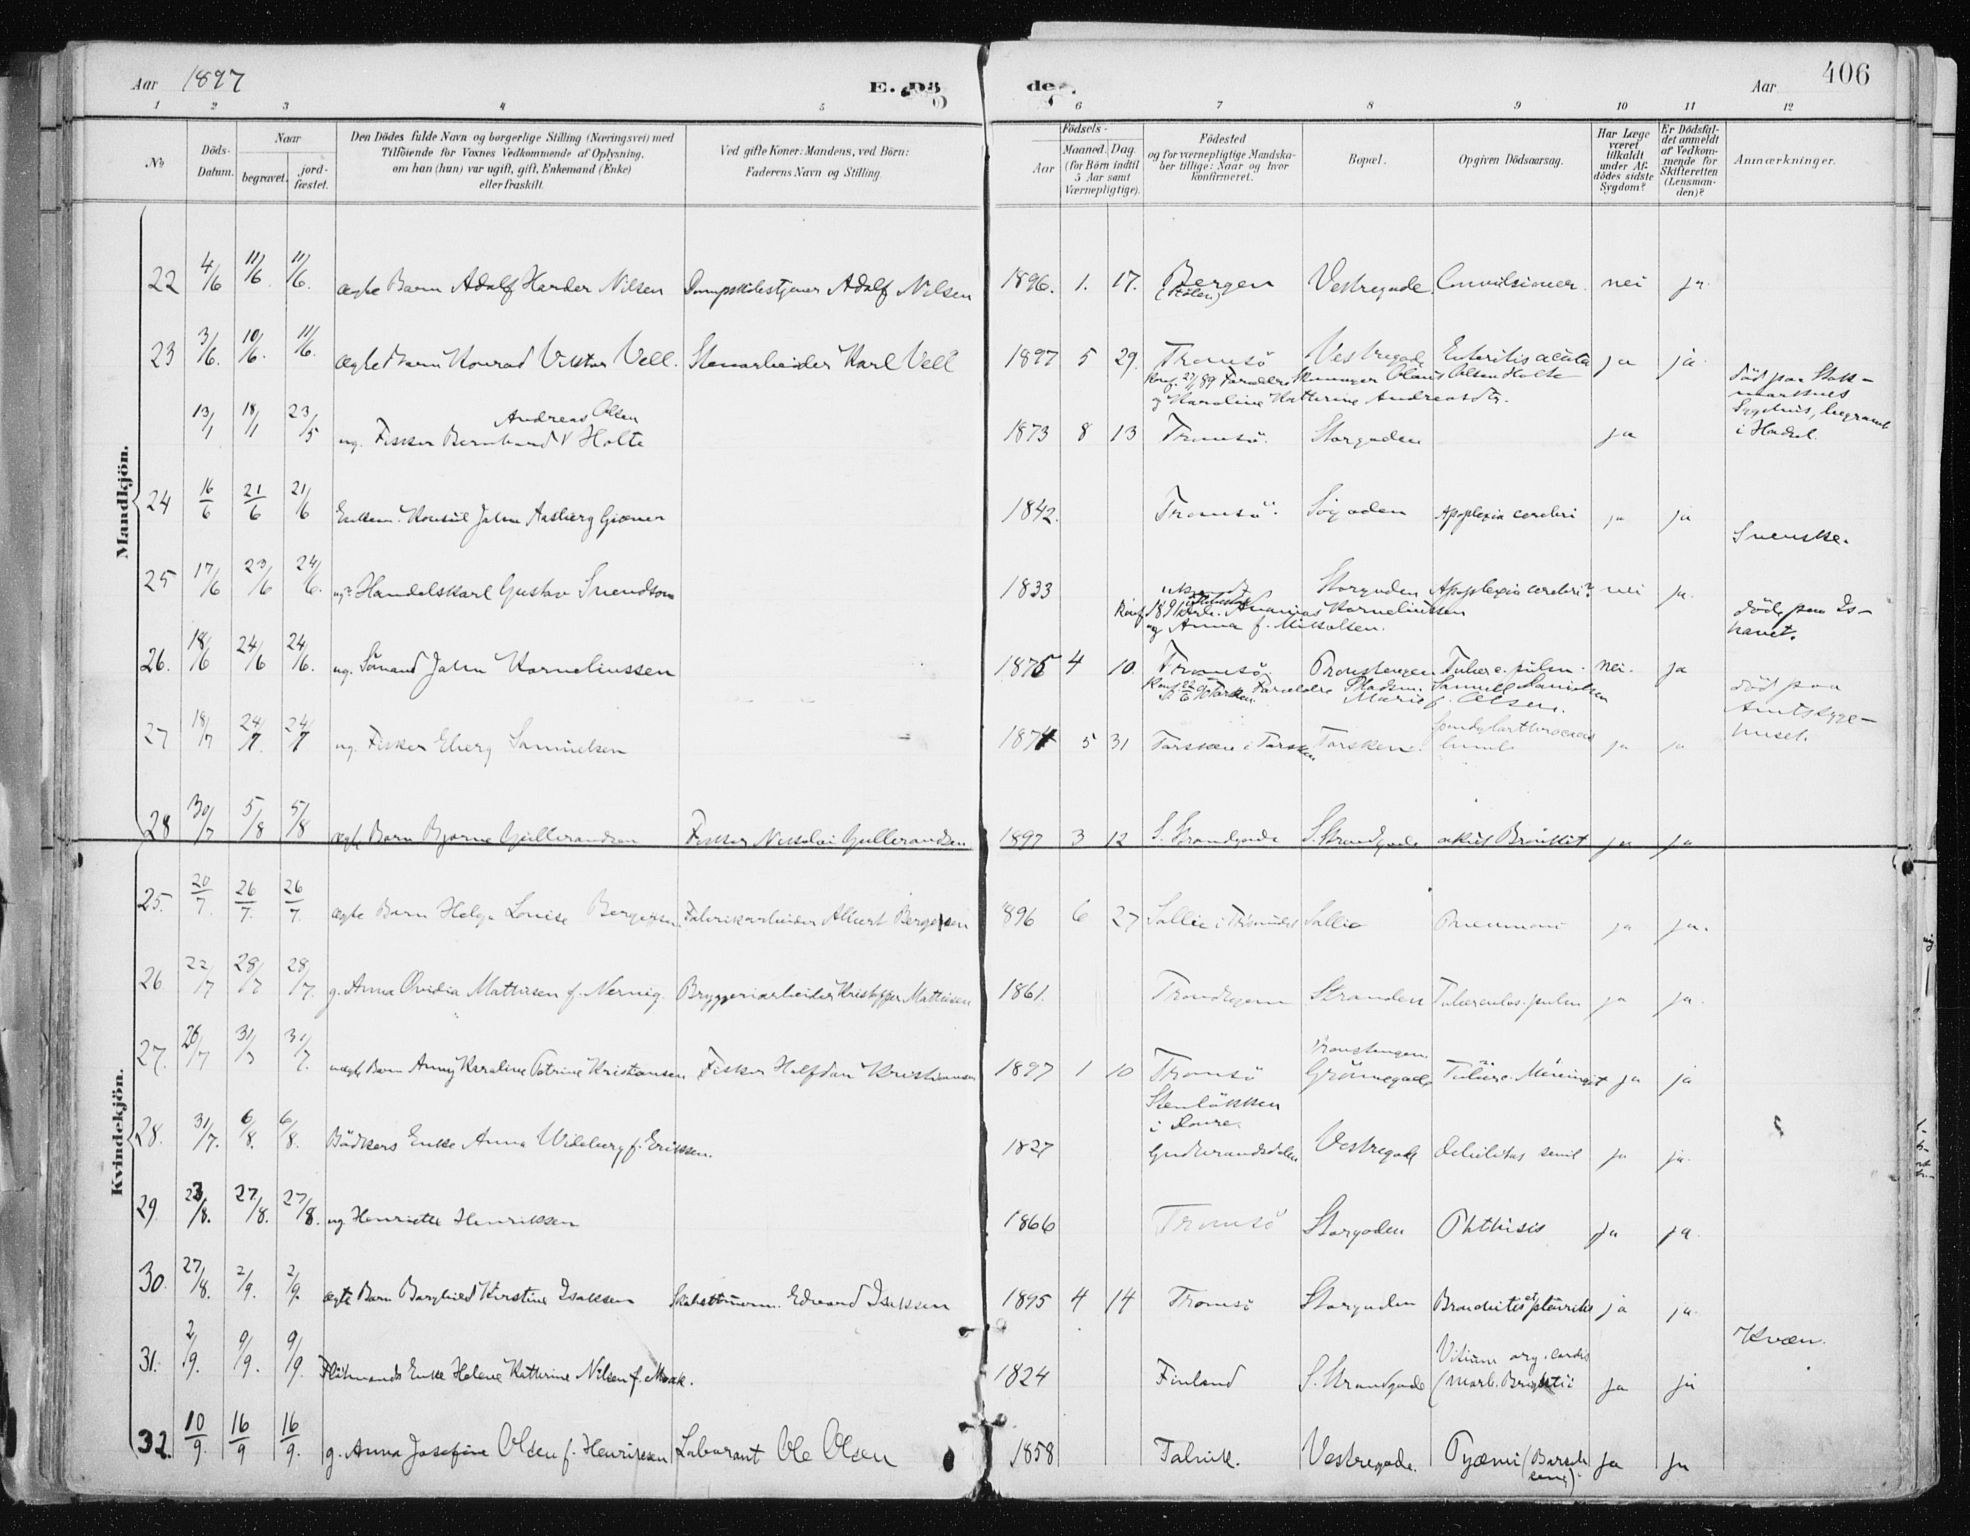 Aar 1897
E. Dö
de.
Aar
406
1 2 3 4 5 6 7 8 9 10 11 12
No
Döds-Datum.
Naar
begravet.
jord-fæstet.
Den Dödes fulde Navn og borgerlige Stilling (Næringsvei) med
Tilföiende for Voxnes Vedkommende af Oplysning,
om han (hun) var ugift, gift, Enkemand (Enke)
eller fraskilt.
Ved gifte Koner: Mandens, ved Börn:
Faderens Navn og Stilling.
Födsels-
Aar
Maaned. Dag.
(for Börn indtil
5 Aar samt
Værnepligtige).
Födested
og for værnepligtige Mandska-
ber tillige: Naar og hvor
konfirmeret.
Bopæl.
Opgiven Dödsaarsag.
Har Læge
været
tilkaldt
under Af-
dödes sidste
Sygdom?
Er Dödsfal-
det anmeldt
af Vedkom-
mende for
Skifteretten
(Lensman-
den)?
Anmærkninger.
Mandkjön.
22 4/6 11/6. 11/6. ægte Barn Adolf Harder Nilsen Adolf Nilsen 1896. 1. 17. Bergen Vestregade. Convulsioner. nei ja.
23 3/6. 10/6. 11/6. ægte Barn Konrad Viktor Vell. Stenarbeider Karl Vell 1897 5 29. Tromsö Vestregade Enteritis acuta ja ja.
Konf. Forældre Olaus Olsen Holte
og Karoline Kathrine Andreasdtr.
13/1 18/1 23/5 ug. Fisker Bernhard V Holte
Andreas Olsen
1873 8 13 Tromsö. Storgaden ja
död paa Stok-
marknes
Sygehus, begravet
i Hadsel.
24 16/6 21/6 21/6 Enkem. Konsul John Aasberg Giæver 1842. Tromsö. Sögaden Apoplexia cerebri ja ja
25 17/6 23/6 24/6. ug. Handelskarl Gustav Svendson 1833 Storgaden Apoplexia cerebri? nei ja.
Svenske.
Konf. 1891 Ananias Korneliussen
og Anna f. Mikkelsen.
26. 18/6 24/6 24/6. ug. Sömand John Korneliussen 1875 4 10. Tromsö. Tuberc. pulm. nei. ja
döde paa Is-
havet.
Konf. Torsken Forældre Samuel Danielsen
Marie f. Olsen.
27 18/7 24/7 24/7 ug. Fisker Eberg Samuelsen 1874 5 31 Torsken i Torsken Torsken. ja ja
död paa
Amtssyge-
huset.
28 30/7 5/8 5/8 ægte Barn Bjarne Gulbrandsen Fisker Nikolai Gulbrandsen 1897 3 12 S. Strandgade S. Strandgade akut Bronkit ja ja
Kvindekjön.
25. 20/7. 26/7. 26/7. ægte Barn Helga Louise Bergersen. Fabrikarbeider Albert Bergersen 896 6 27 Pneumoni ja ja.
26 22/7 28/7 28/7. g. Anna Ovidia Mathisen f. Bryggeriarbeider Kristoffer Mathisen 1861. Trondhjem Stranden Tuberculos. pulm ja ja.
27. 26/7 31/7 31/7. uægte Barn Anny Karoline Petrine Kristiansen Fisker Halfdan Kristiansen 1897 1 10 Tromsö Grönnegade Tuberc. Meningit ja ja
28. 31/7. 6/8. 6/8. Bödkers Enke Anna Wideberg f. Eriksen. 1827
Stenlökken
i Dovre.
Gudbrandsdalen Vestregade Debilitas senil ja ja.
29. 23/8. 27/8. 27/8. ug Henriette Henriksen 1866 Tromsö Storgaden Phthisis ja ja.
30. 27/8. 2/9. 2/9. ægte Barn Borghild Kirstine Isaksen Edvard Isaksen 1895 4 14 Tromsö Storgaden Bronchitis et pleuritis ja ja.
31. 2/9. 9/9. 9/9. Enke Helene Kathrine Nilsen f. 1824 Finland S. Strandgade
Vitium org. cordis
(Morb. Brightii ja ja
Kvæn.
32. 10/9. 16/9 16/9. g. Anna Josefine Olsen f. Henriksen Laborant Ole Olsen 1858 Talvik. Vestregade. Pyæmi (Barsel-
seng). ja ja